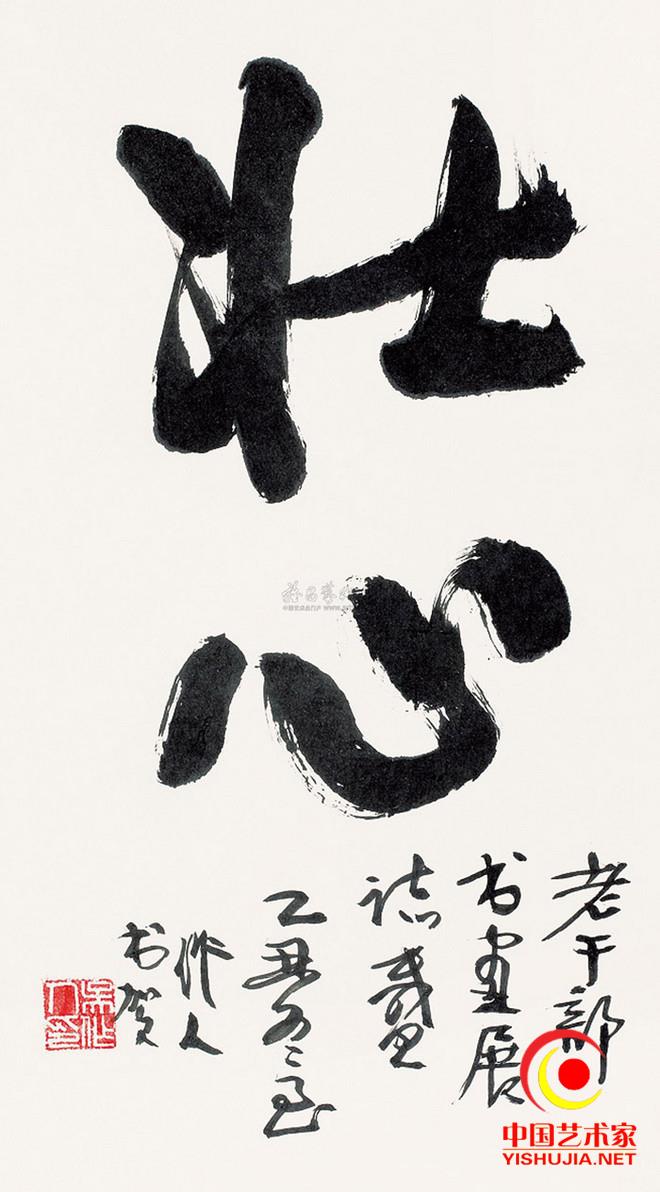 壮心
老干部
书画展
志盛
乙丑
作人
书贺
吴作人印
中国艺术家
YISHUJIA.NET